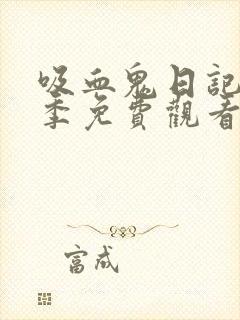 吸血鬼日記
季免費觀看
富成